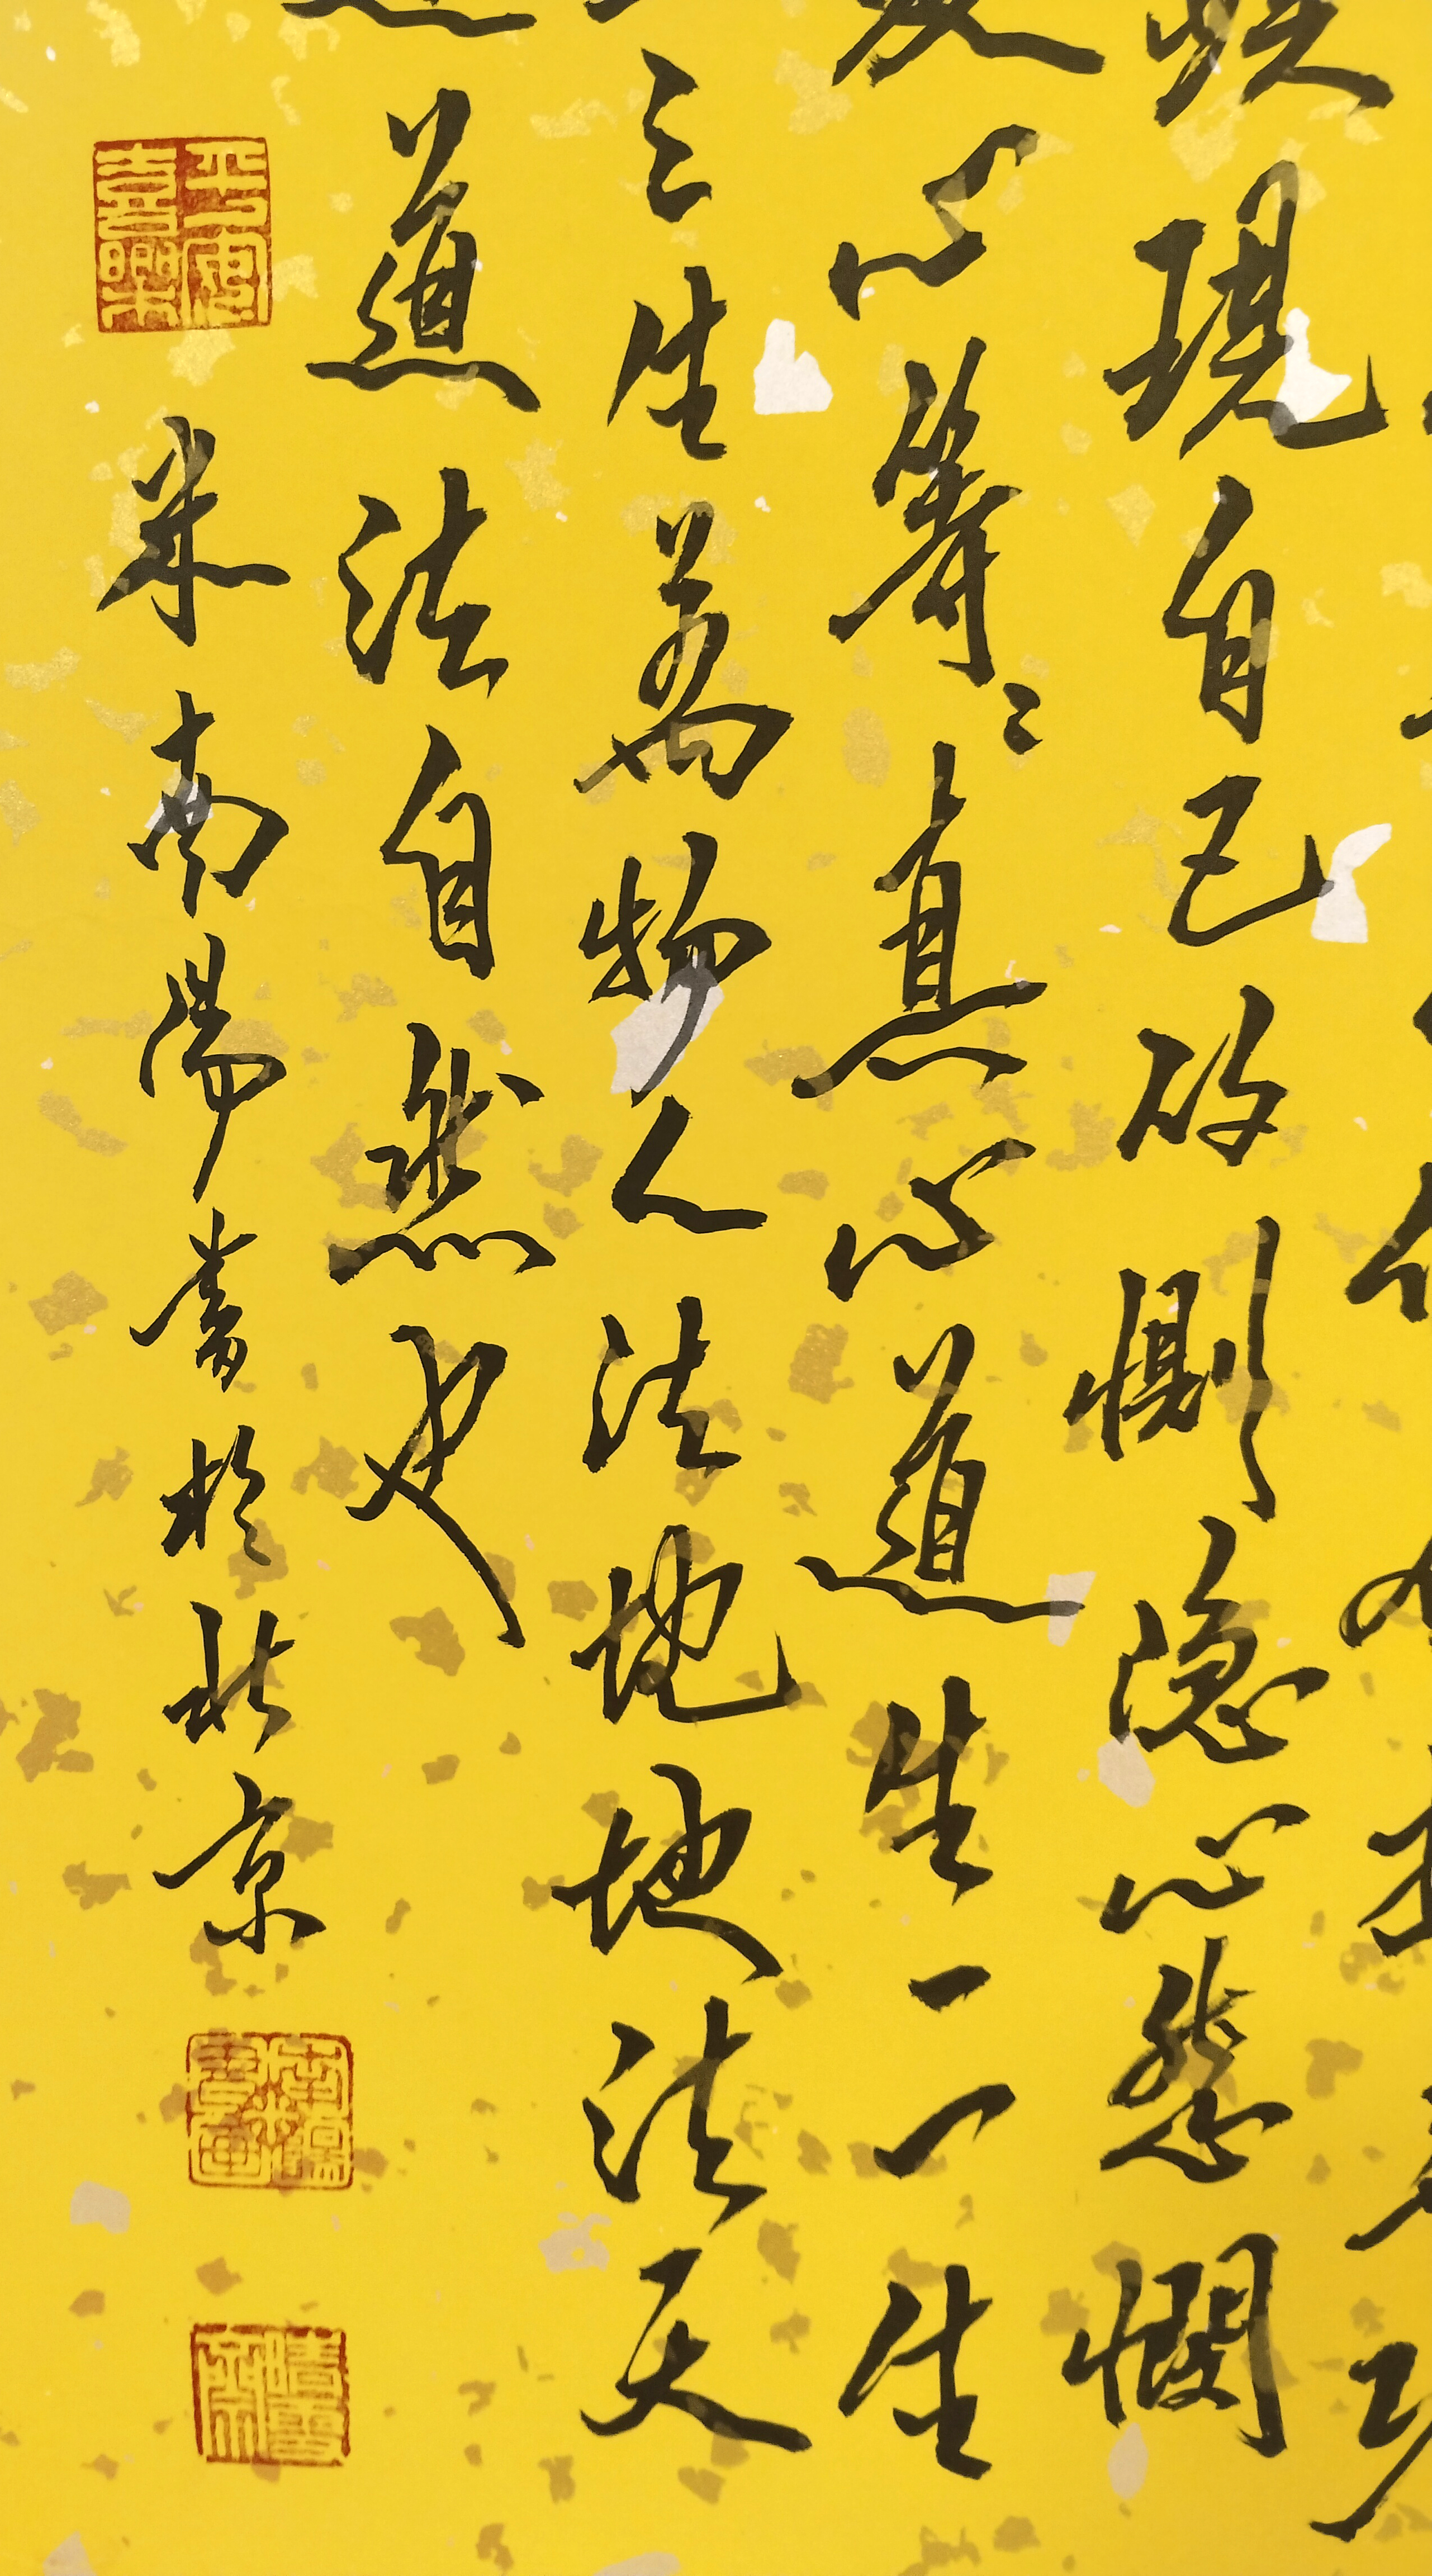 現自己的惻隱心慈憫
心等〻真心道生一一生
三生萬物人法地地法天
道法自然也
米南陽書於北京
平安喜樂